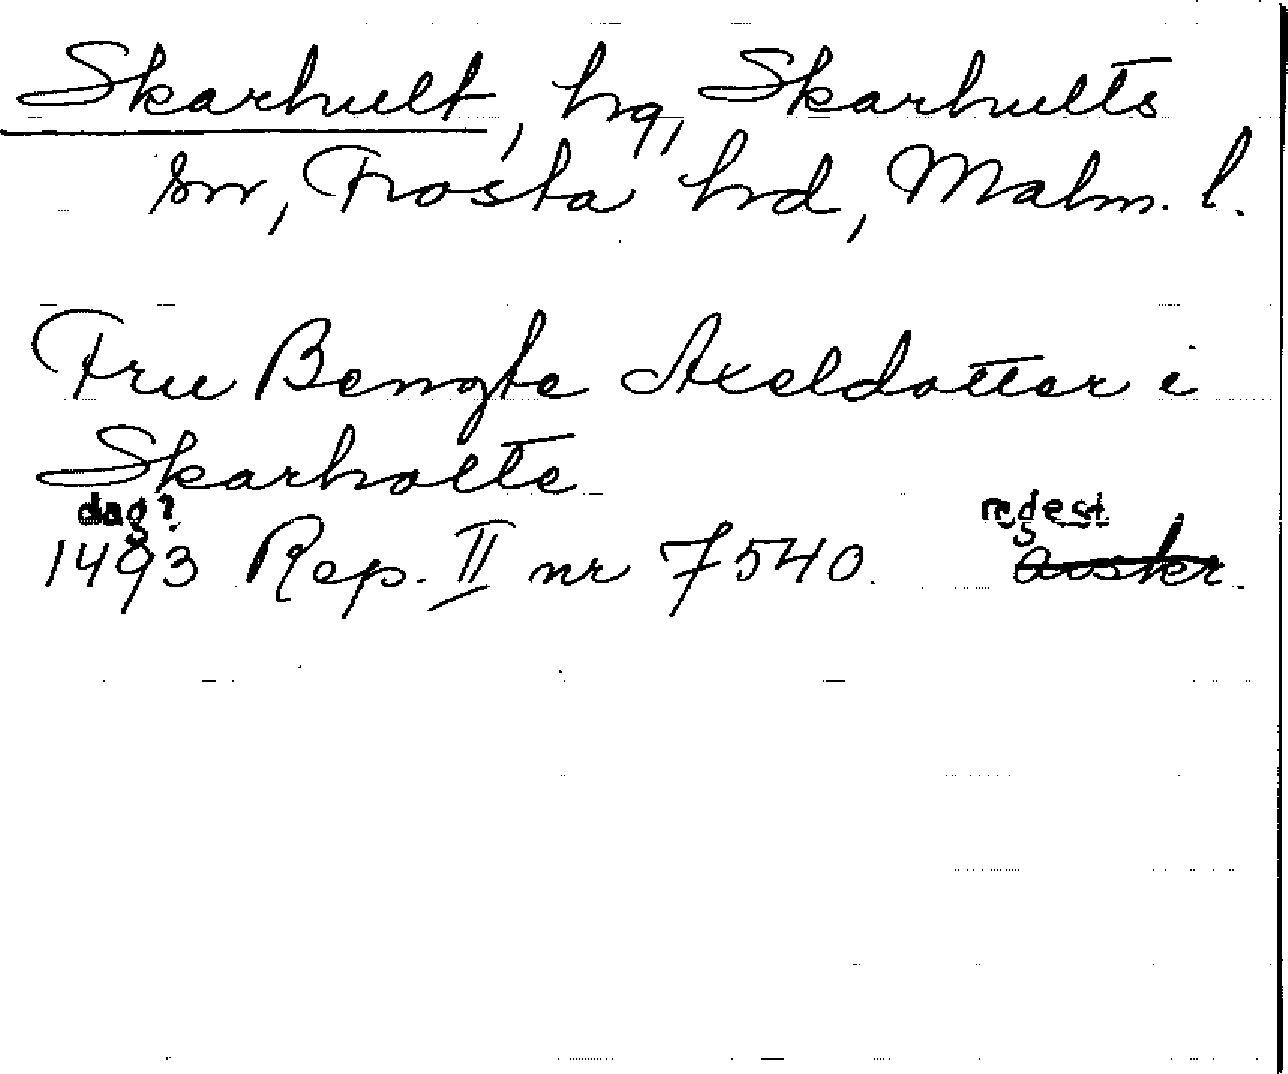 Skarhult, hg, Skarhults
sn, Frosta hrd, Malm. l.
Fru Bengte Axeldotter i
Skarholte
dag? regest.
1493 Rep. II nr 7540. avskr.